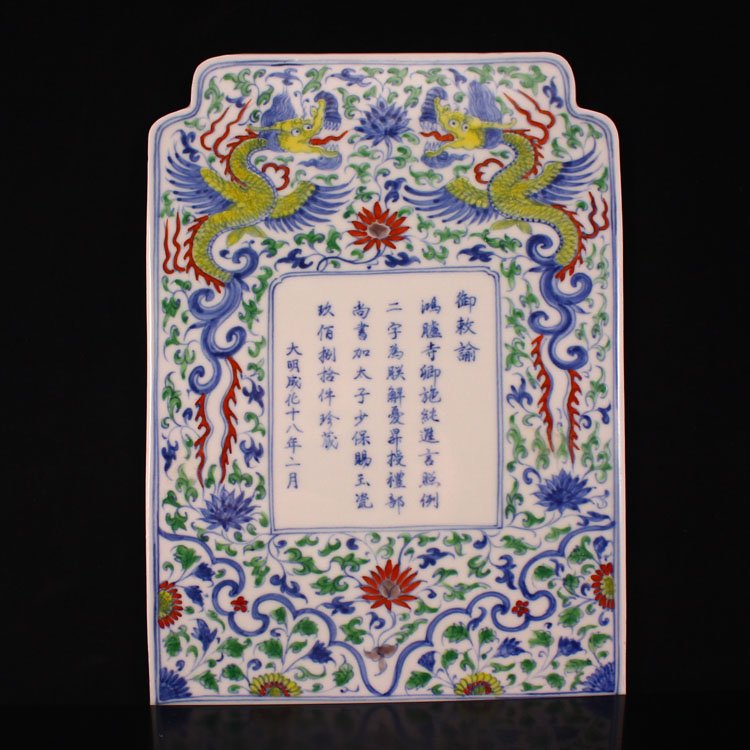 御敕諭
鴻臚寺卿施純進言照例
二字為朕解憂昇授禮部
尚書加太子少保賜玉瓷
玖佰捌拾件珍藏
大明成化十八年二月